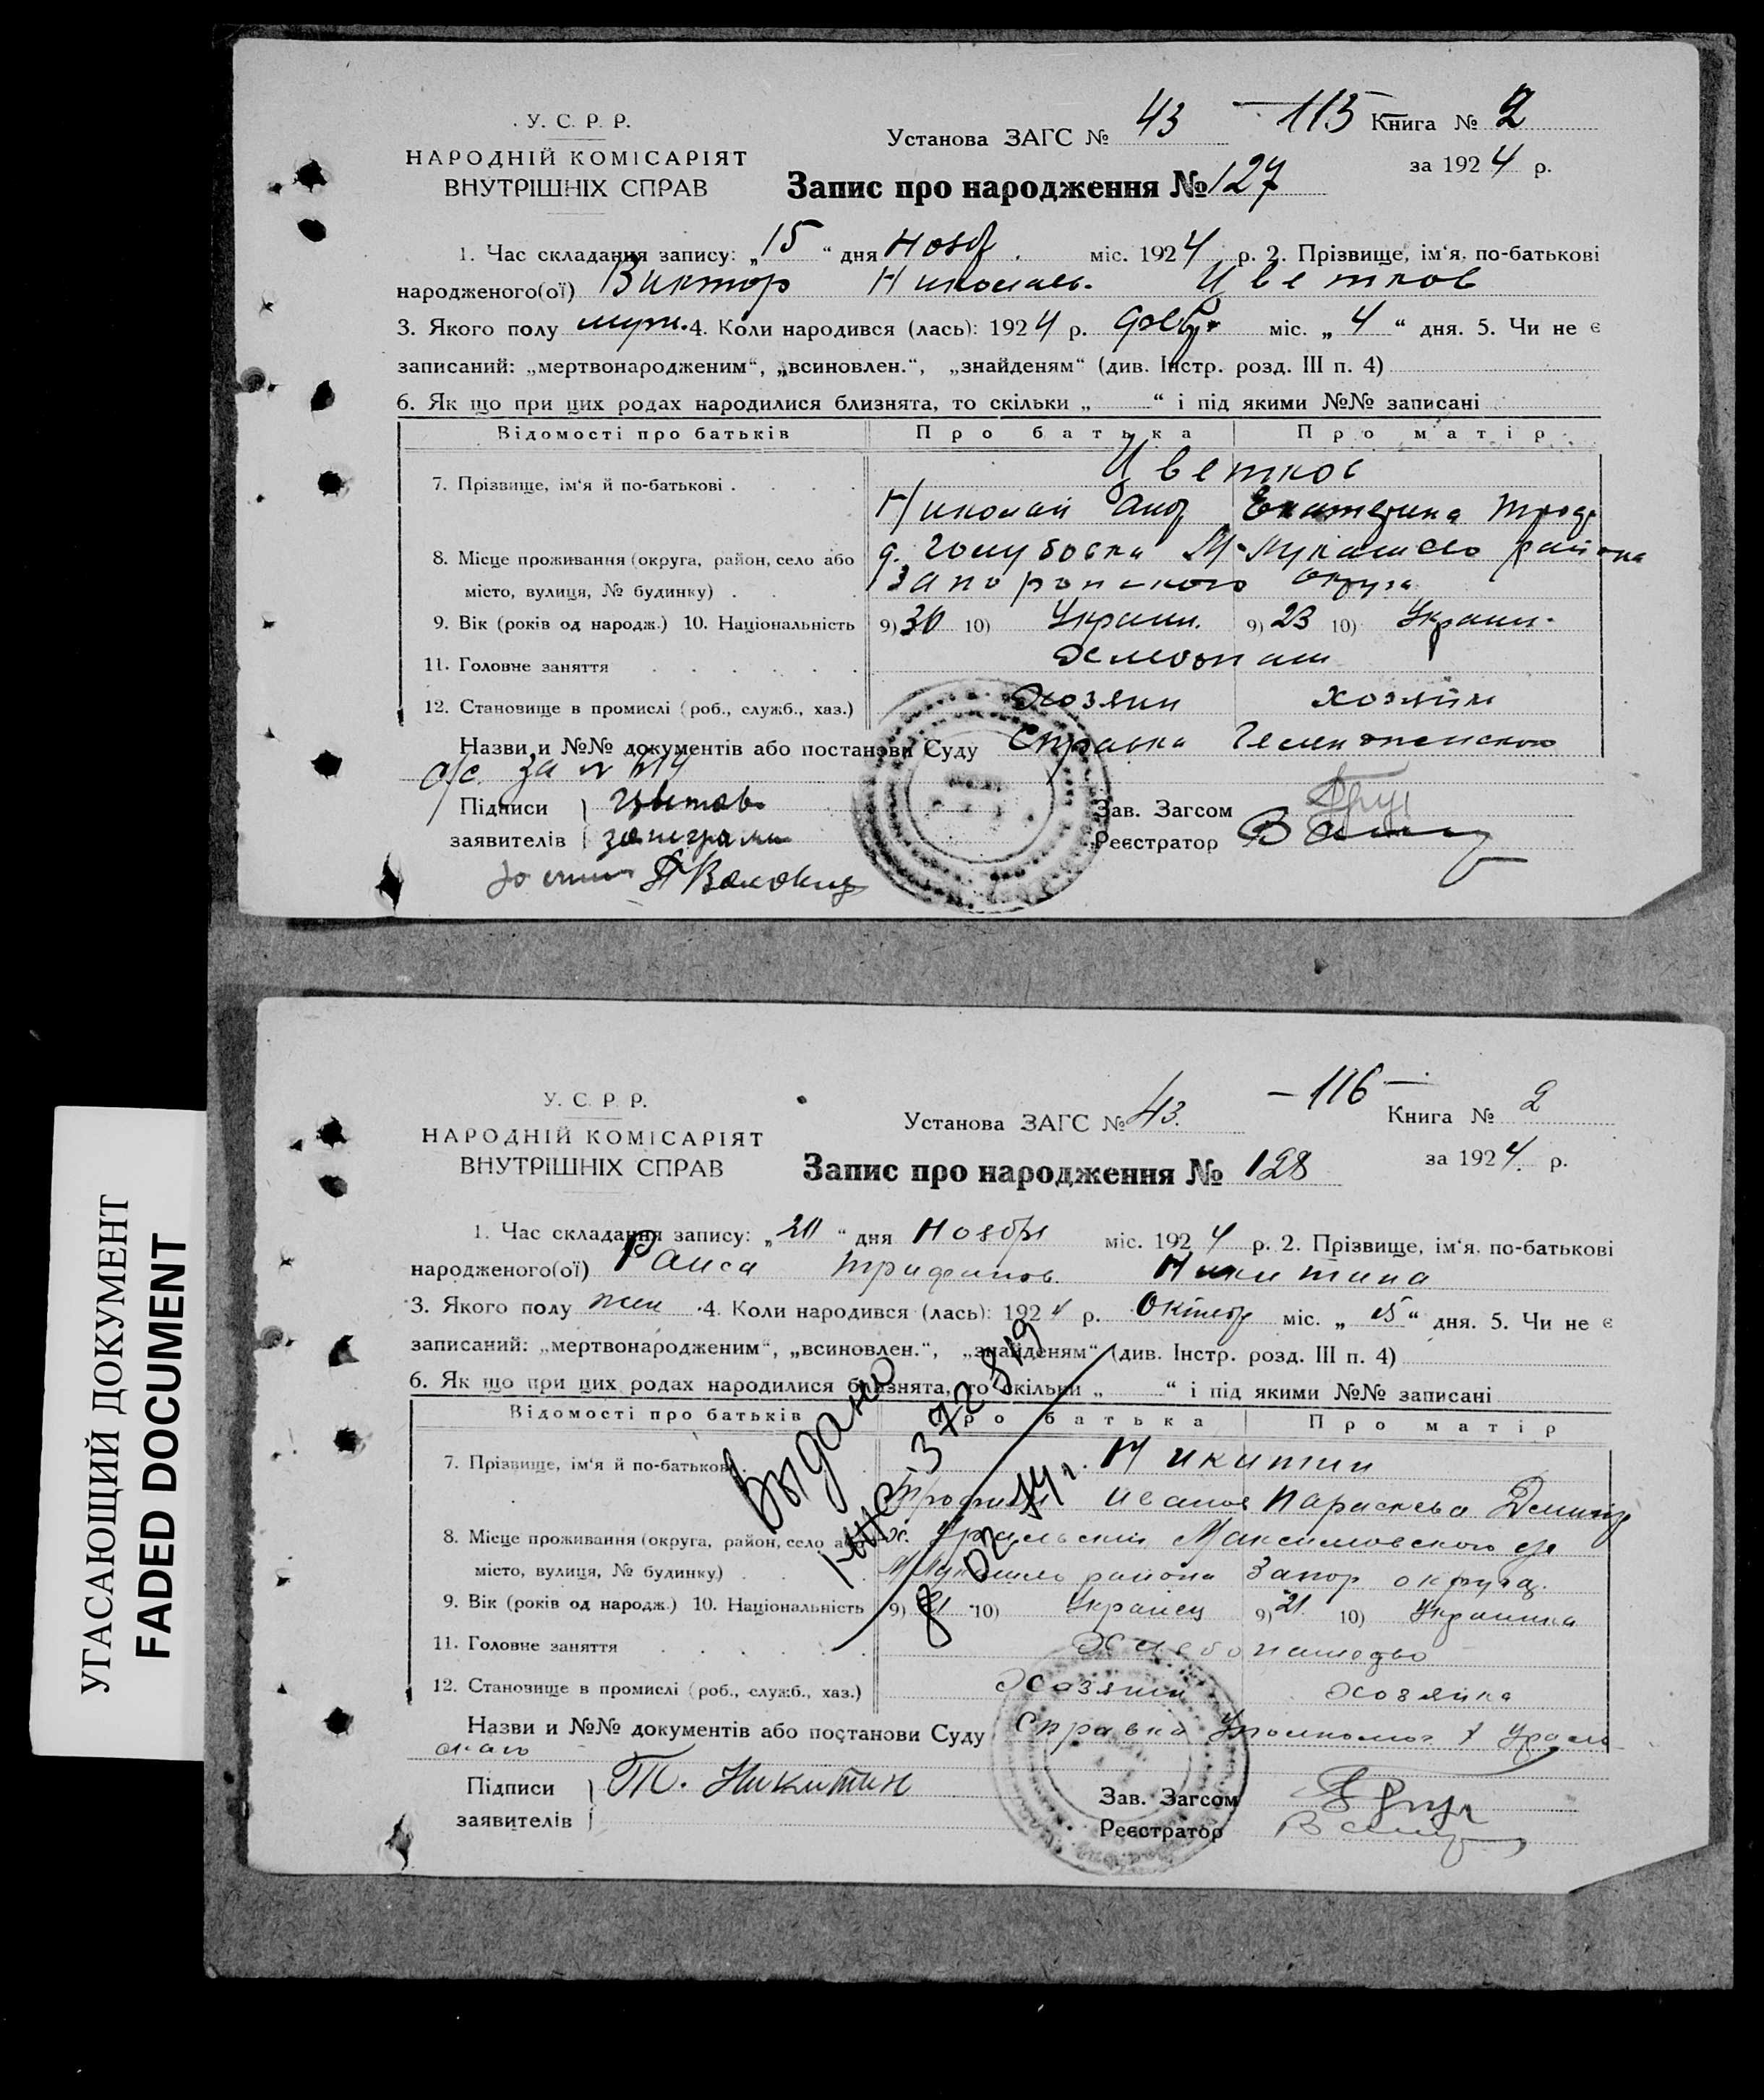 У. С. Р. Р.
НАРОДНІЙ КОМІСАРІЯТ
ВНУТРІШНІХ СПРАВ
Установа ЗАГС № 43 — 115 Книга № 2
за 1924 р.
Запис про народження № 127
1. Час складання запису: „15“ дня Нояб. міс. 1924 р. 2. Прізвище, ім‘я, по-батькові
народженого(ої) Виктор Николаев. Цветков
3. Якого полу муж. 4. Коли народився (лась): 1924 р. міс. „4“ дня. 5. Чи не є
записаний: „мертвонародженим“, „всиновлен.“, „знайденям“ (див. Інстр. розд. III п. 4)
6. Як що при цих родах народилися близнята, то скільки „ “ і під якими №№ записані
Відомості про батьків Про батька Про матір
7. Прізвище, ім‘я й по-батькові . Цветков
Николай Анд Екатерина
8. Місце проживання (округа, район, село або д. Голубовка района
місто, вулиця, № будинку) . Запорожского округа
9. Вік (років од народж.) 10. Національність 9) 30 10) Украин. 9) 23 10) Украин.
11. Головне заняття
12. Становище в промислі (роб., служб., хаз.) Хозяин хозяйк
Назви и №№ документів або постанови Суду Справка
с/с. за №
Підписи
заявителів
Зав. Загсом
Реєстратор
УГАСАЮЩИЙ ДОКУМЕНТ
FADED DOCUMENT
У. С. Р. Р.
НАРОДНІЙ КОМІСАРІЯТ
ВНУТРІШНІХ СПРАВ
Установа ЗАГС № 43. — 116 — Книга № 2
за 1924. р.
Запис про народження № 128
1. Час складання запису: „20“ дня Ноября міс. 1924 р. 2. Прізвище, ім‘я, по-батькові
народженого(ої) Раиса Никитина
3. Якого полу жен 4. Коли народився (лась): 1924 р. Октябр міс. „15“ дня. 5. Чи не є
записаний: „мертвонародженим“, „всиновлен.“, „знайденям“ (див. Інстр. розд. III п. 4)
6. Як що при цих родах народилися близнята, то скільки „ “ і під якими №№ записані
Відомості про батьків Про батька Про матір
Выдано
372819
7. Прізвище, ім‘я й по-батькові . Никитин
Трофим Иванов Параскева
8. Місце проживання (округа, район, село або х. Уральский Максимовского с/с
місто, вулиця, № будинку) . района Запор округа.
9. Вік (років од народж.) 10. Національність 9) 21 10) Украинец 9) 21. 10) Украинка
11. Головне заняття Хлебопашество
12. Становище в промислі (роб., служб., хаз.) Хозяин Хозяйка
Назви и №№ документів або постанови Суду Справка х Ураль
ского
Підписи Т. Никитин
заявителів
Зав. Загсом
Реєстратор